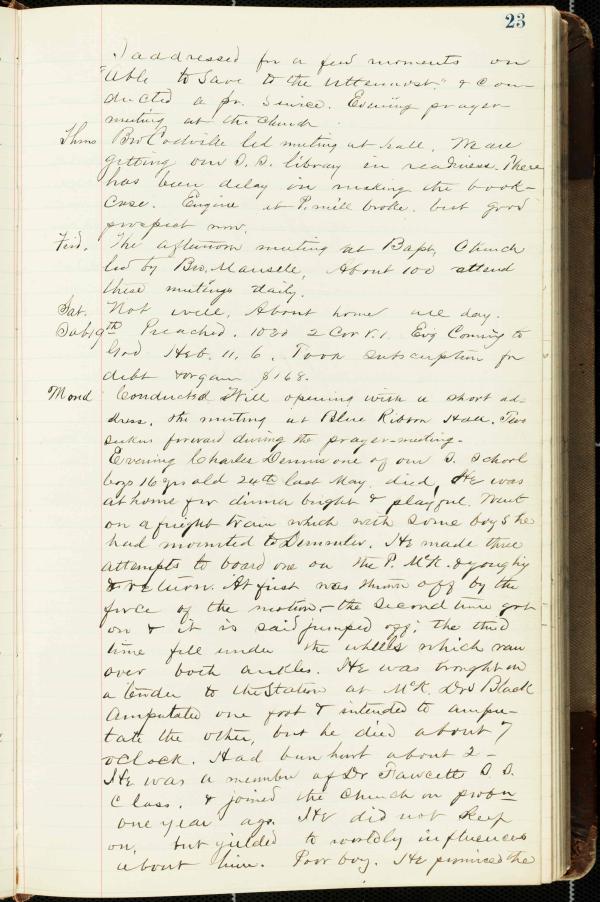 23
I addressed for a few moments on
"Able to Save to the uttermost." & Con-
ducted a pr. Service. Evening prayer-
meeting at the Church.
Thurs Bro Codville led meeting at hall. We are
getting our S. S. library in readiness. There
has been delay in making the book-
case. Engine at P. mill broke. but good
prospect now.
Frid. The afternoon meeting at Bapt. Church
led by Bro. Mansell, About 100 attend
these meetings daily.
Sat. Not well. About home all day.
Sab. 9th Preached. 1030 2 Cor V. 1. Evg Coming to
God Heb. 11, 6. Took Subscription for
debt & organ $168.
Mond Conducted, Will opening with a short ad-
dress, the meeting at Blue Ribbon Hall. Two
seekers forward during the prayer-meeting.
Evening Charles Dennis one of our S. School
boys 16 yrs old 24th last May, died, He was
at home for dinner bright & playful. Went
on a freight train which with some boys he
had mounted to Demmler. He made three
attempts to board one on the P. McK. & Youghiy
to return. At first was thrown off by the
force of the motion, - the second time got
on & it is said jumped off; the third
time fell under the wheels which ran
over both ankles. He was brought on
a tender to the Station at McK. Drs Black
Amputated one foot & intended to ampu-
tate the other, but he died about 7
oClock. Had been hurt about 2 -
He was a member of Dr Fawcetts S. S.
Class, & joined the Church on probn
one year ago. He did not keep
on, but yielded to worldly influences
about him. Poor boy. He promised the